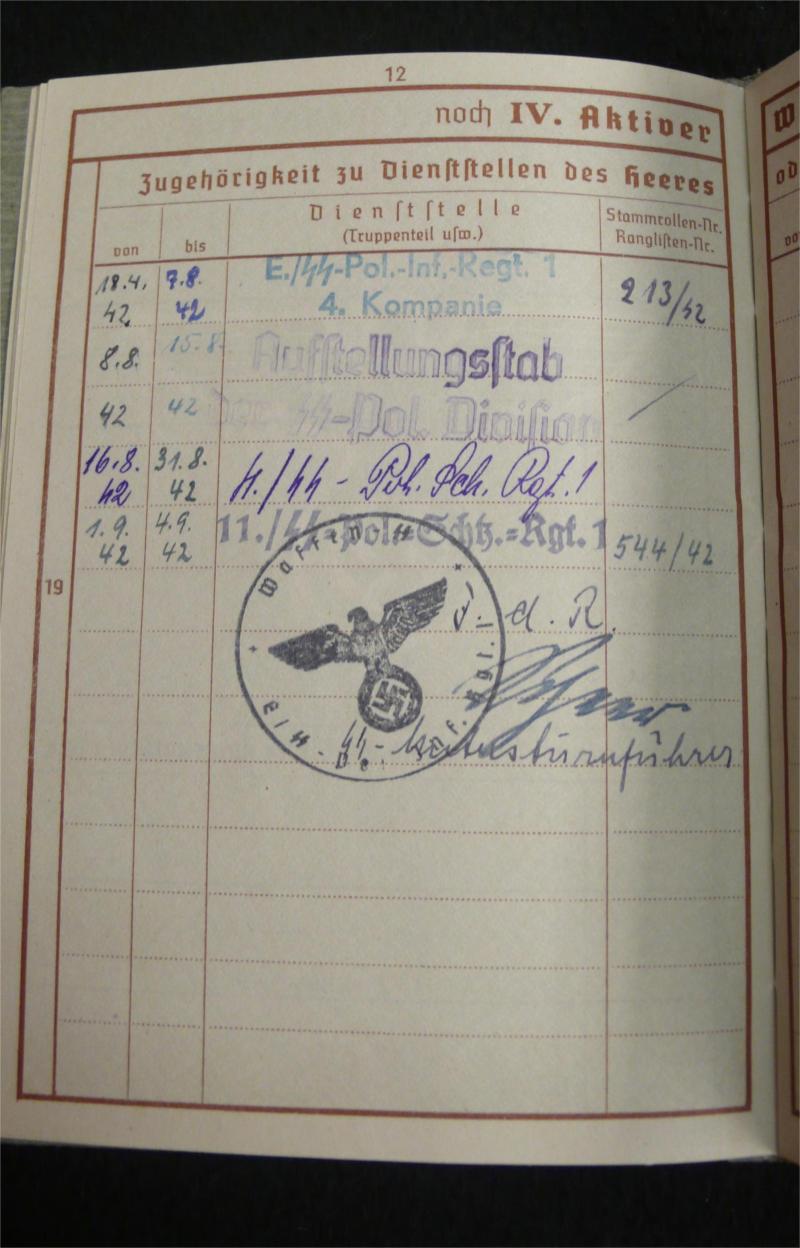 12
noch IV. Aktiver
Zugehörigkeit zu Dienststellen des Heeres
von bis Dienststelle (Truppenteil usw.) Stammrollen-Nr. Ranglisten-Nr.
18.4. 42 7.8. 42 E./SS-Pol.-Inf.-Regt. 1
4. Kompanie 213/42
8.8. 42 15.8. 42 Aufstellungsstab
der SS-Pol. Division
16.8. 42 31.8. 42 4./SS-Pol. Sch. Rgt. 1
1.9. 42 4.9. 42 11./SS-Pol.-Schtz.-Rgt. 1 544/42
19
Waffen SS
d. R.
SS-
W
od
vo